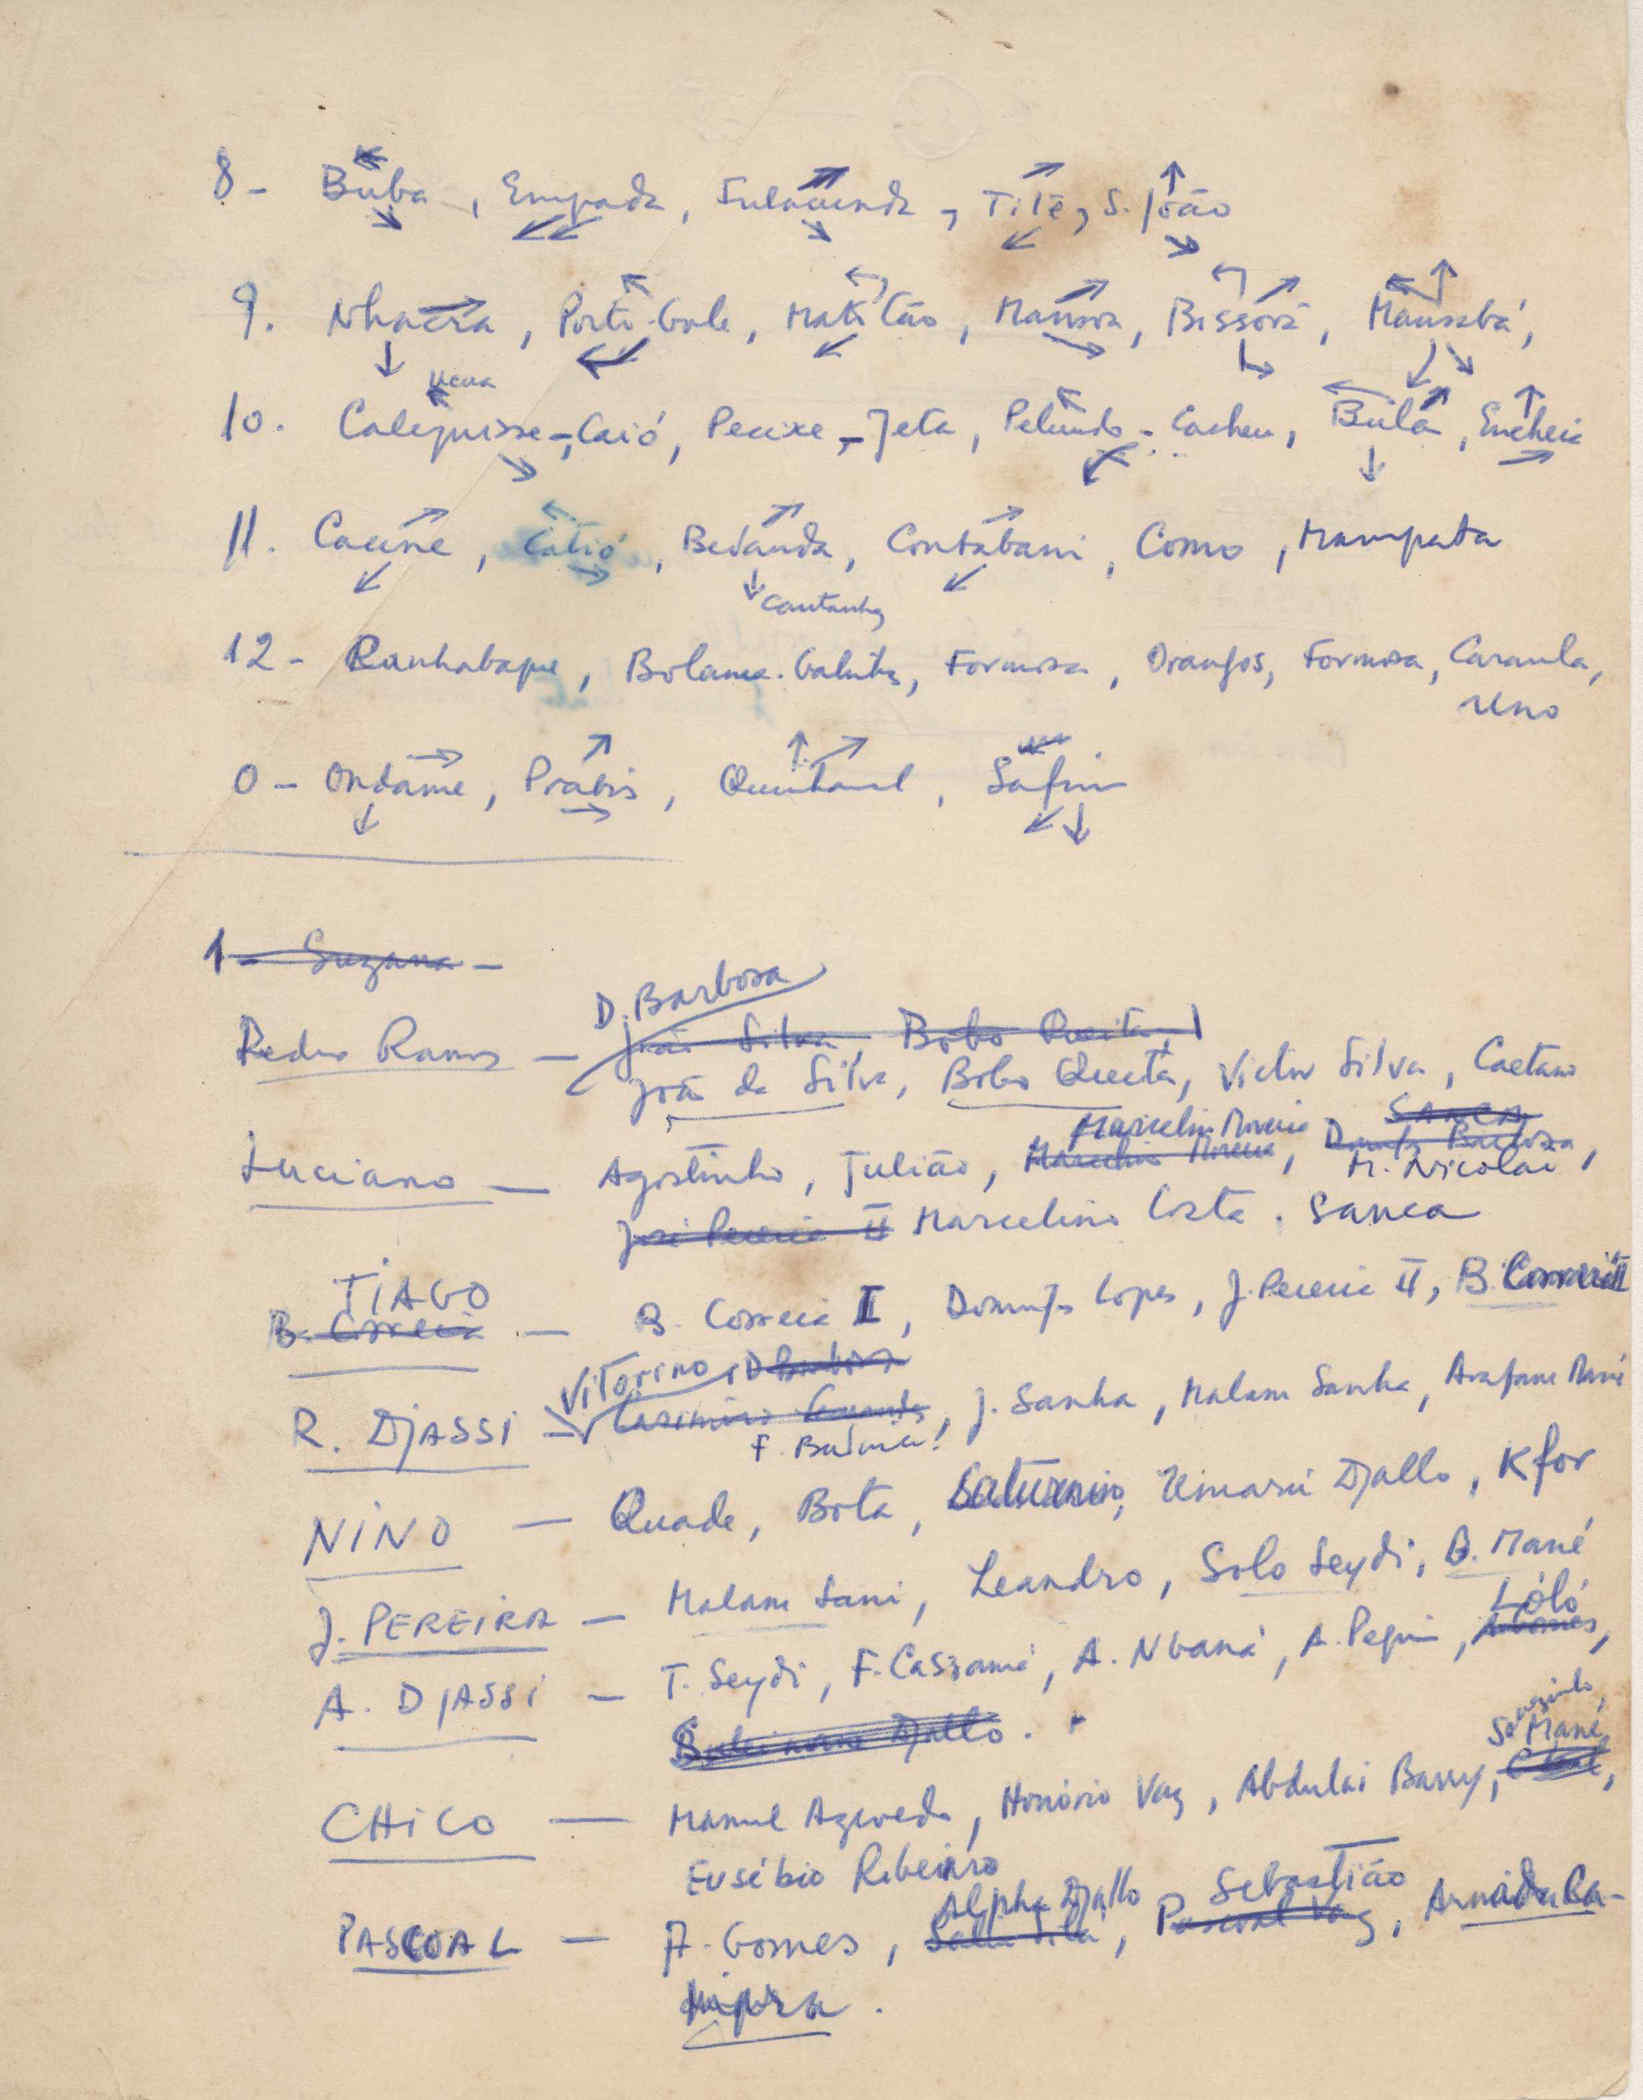 8 - Buba, Empada, Fulacunda, Tite, S. João
9. Nhacra, Porto-Gole, Matitão, Mansoa, Bissorã, Mansabá,
Ucua
10. Calequisse -, Caió, Pecixe - Jeta, Pelundo - Cacheu, Bula, Encheia
11. Cacine, Catió, Bedanda, Contabani, Como, Mampata
Cantanhz
12 - Banhabaque, Bolama. Galinhs, Formosa, Orangos, Formosa, Caravela,
Uno
0 - Ondame, Prabis, Quinhamel, Safim
1 - Suzana -
D. Barbosa
João Silva Bobo Queita,
Pedro Ramos -
João da Silva, Bobo Queita, Victor Silva, Caetano
Marcelino Moreira SANCA
Luciano - Agostinho, Julião, Marcelino Moreira, Domingos Barbosa,
M. Nicolai
José Pereira II Marcelino Costa. Sanca
TIAGO
B. Correia - B. Correia I, Domingos Lopes, J. Pereira II, B. Correia II
Vitorino, D Barbosa
R. DJASSI - J. Sanha, Malam Sanha, Arafane Mané
NINO - Quade, Bota, Saturnino, Umarú Djallo, Kfor
J. PEREIRA - Malam Sani, Leandro, Solo Seydi, B. Mané
Lóló
A. DJASSI - T. Seydi, F. Cassamá, A. Nbaná, A. Pequi, A. Gomes,
Suleimane Djallo.
Mané
CHICO - Manuel Azevedo, Honório Vaz, Abdulai Barry,
Eusébio Ribeiro
Alpha Djallo Sebastião
PASCOAL - A. Gomes, Pascoal Vaz,